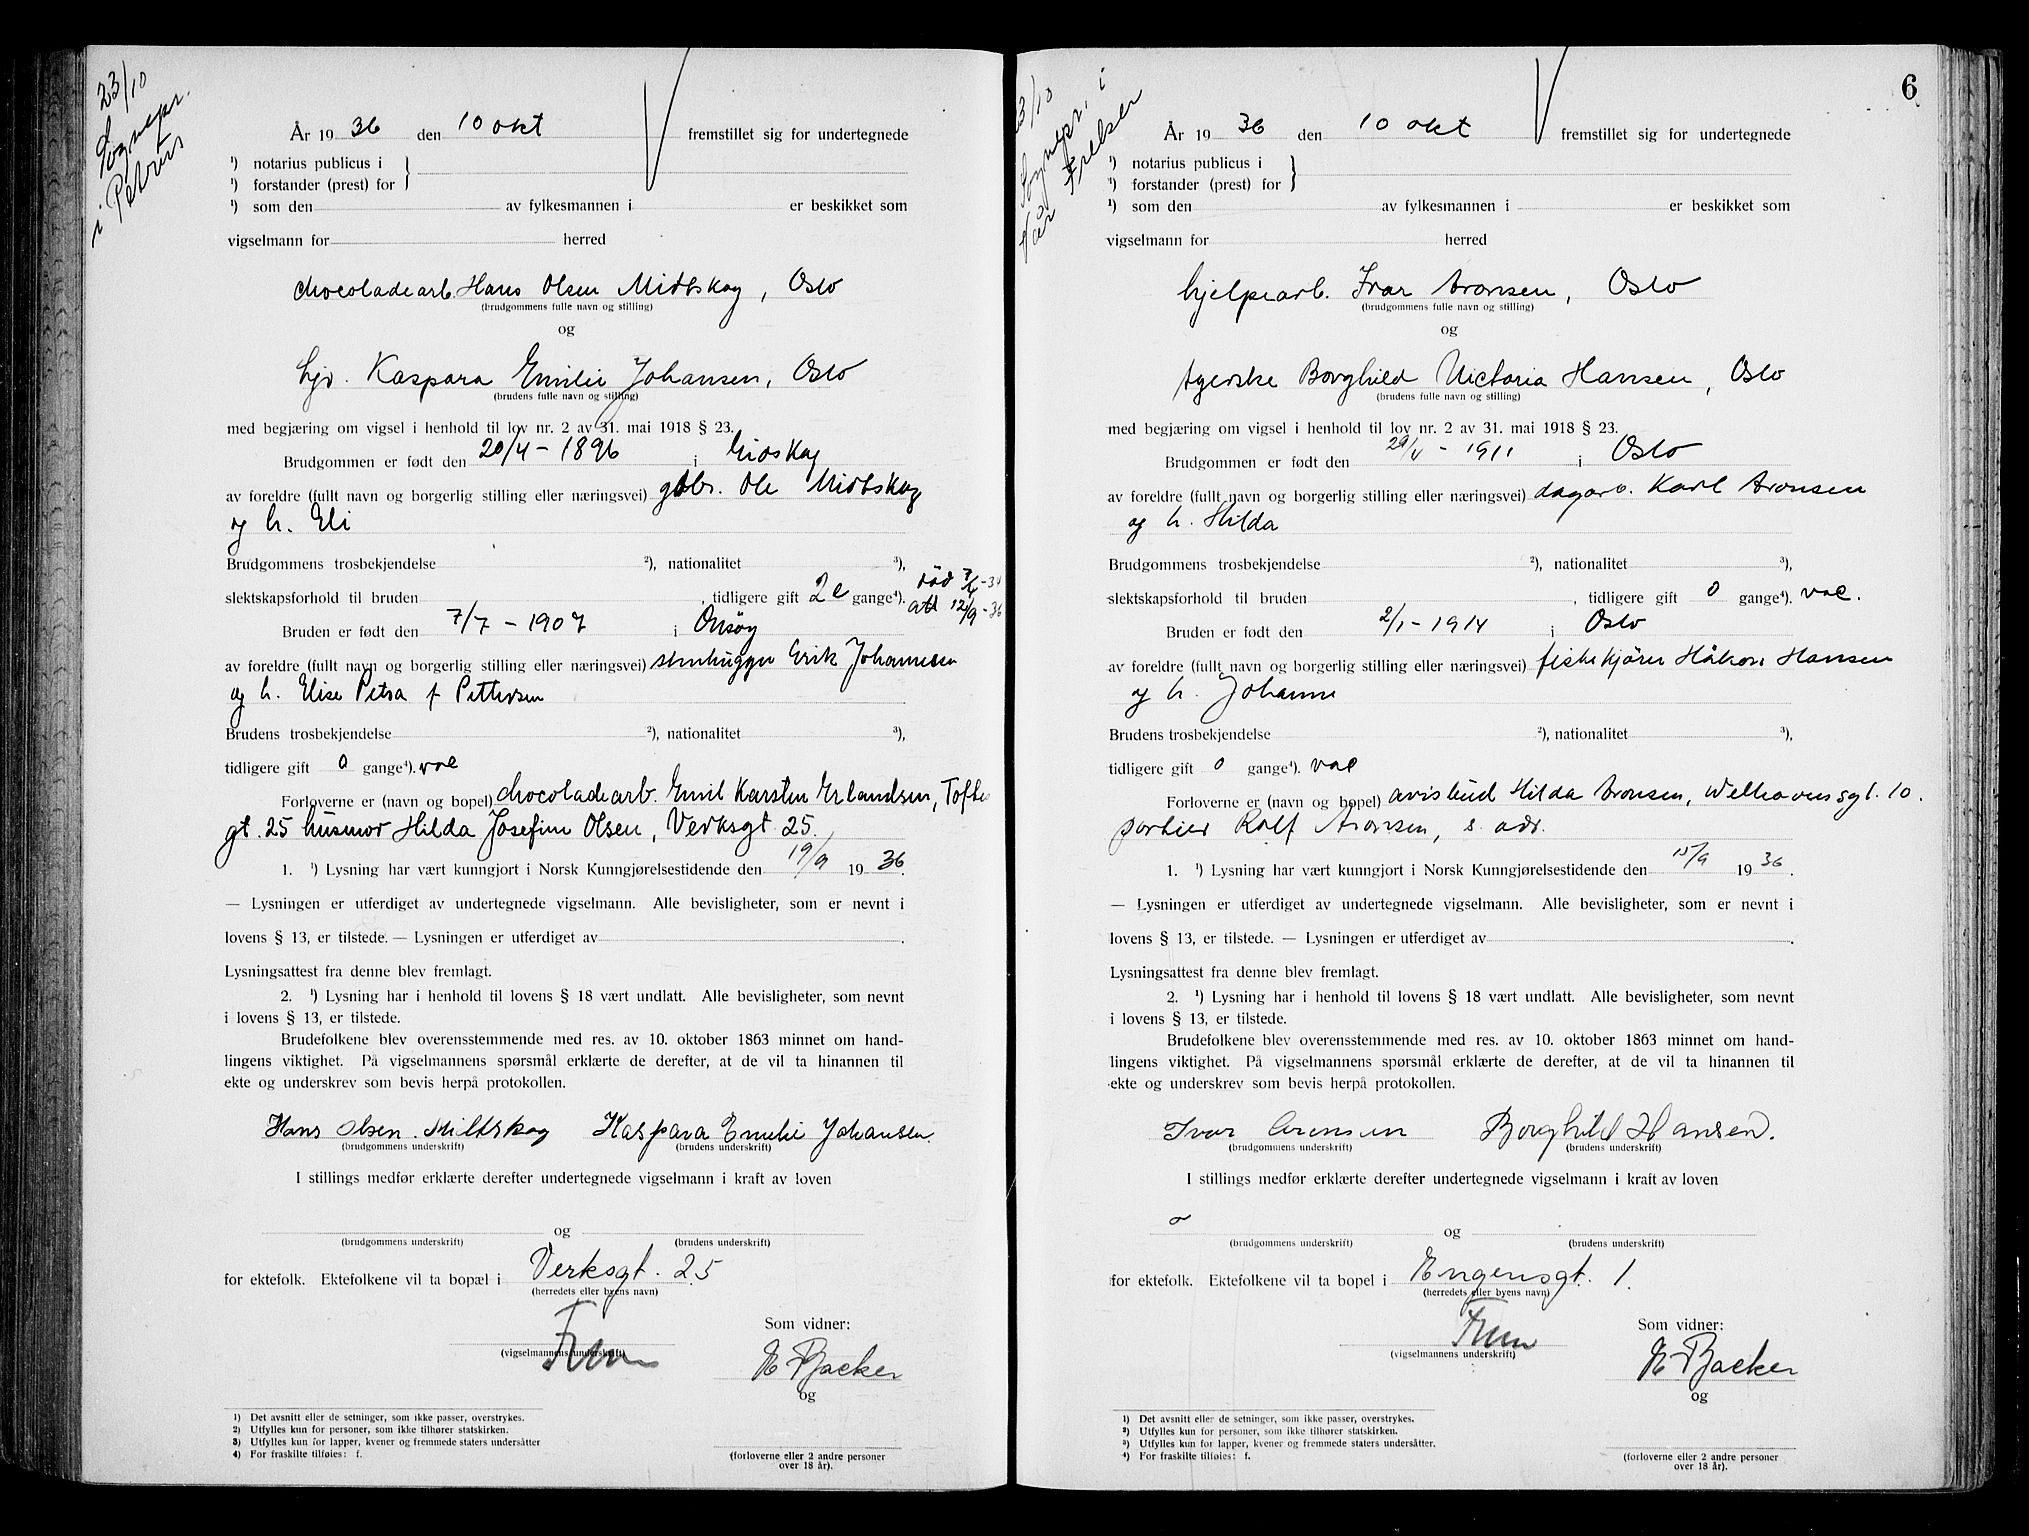 23/10
Sognepr.
i Petrus
År 1936 den 10 okt fremstillet sig for undertegnede
¹) notarius publicus i
¹) forstander (prest) for
¹) som den av fylkesmannen i er beskikket som
vigselmann for herred
chocoladearb. Hans Olsen Midtskog, Oslo
(brudgommens fulle navn og stilling)
og
hjv. Kaspara Emilie Johansen, Oslo
(brudens fulle navn og stilling)
med begjæring om vigsel i henhold til lov nr. 2 av 31. mai 1918 § 23.
Brudgommen er født den 20/4 - 1896 i Eidskog
av foreldre (fullt navn og borgerlig stilling eller næringsvei) gbr. Ole Midtskog
og h. Eli
Brudgommens trosbekjendelse ²), nationalitet ³),
slektskapsforhold til bruden , tidligere gift 2 gange⁴). død
att 12/9-36
Bruden er født den 7/7 - 1907 i Onsøy
av foreldre (fullt navn og borgerlig stilling eller næringsvei) stenhugger Erik Johannesen
og h. Elise Petra f Pettersen
Brudens trosbekjendelse ²), nationalitet ³),
tidligere gift 0 gange⁴). vac
Forloverne er (navn og bopel) chocoladearb. Emil Karsten Erlandsen, Toftes
gt. 25 husmor Hilda Josefine Olsen, Verksgt 25.
1. ¹) Lysning har vært kunngjort i Norsk Kunngjørelsestidende den 19/9 1936.
— Lysningen er utferdiget av undertegnede vigselmann. Alle bevisligheter, som er nevnt i
lovens § 13, er tilstede. — Lysningen er utferdiget av .
Lysningsattest fra denne blev fremlagt.
2. ¹) Lysning har i henhold til lovens § 18 vært undlatt. Alle bevisligheter, som nevnt
i lovens § 13, er tilstede.
Brudefolkene blev overensstemmende med res. av 10. oktober 1863 minnet om hand-
lingens viktighet. På vigselmannens spørsmål erklærte de derefter, at de vil ta hinannen til
ekte og underskrev som bevis herpå protokollen.
Hans Olsen. Midtskog Kaspara Emelie Johansen.
(brudgommens underskrift) (brudens underskrift)
I stillings medfør erklærte derefter undertegnede vigselmann i kraft av loven
og
(brudgommens underskrift) (brudens underskrift)
for ektefolk. Ektefolkene vil ta bopæl i Verksgt. 25
(herredets eller byens navn)
Som vidner:
(vigselmannens underskrift)
E Backer
og
1) Det avsnitt eller de setninger, som ikke passer, overstrykes.
2) Utfylles kun for personer, som ikke tilhører statskirken.
3) Utfylles kun for lapper, kvener og fremmede staters undersåtter
4) For fraskilte tilføies: f.
(forloverne eller 2 andre personer
over 18 år).
6
Sognepr. i
Vår Frelser
År 1936 den 10 okt fremstillet sig for undertegnede
¹) notarius publicus i
¹) forstander (prest) for
¹) som den av fylkesmannen i er beskikket som
vigselmann for herred
hjelpearb. Ivar Aronsen, Oslo
(brudgommens fulle navn og stilling)
og
syerske Borghild Victoria Hansen, Oslo
(brudens fulle navn og stilling)
med begjæring om vigsel i henhold til lov nr. 2 av 31. mai 1918 § 23.
Brudgommen er født den - 1911 i Oslo
av foreldre (fullt navn og borgerlig stilling eller næringsvei) dagarb. Karl Aronsen
og h. Hilda
Brudgommens trosbekjendelse ²), nationalitet ³),
slektskapsforhold til bruden , tidligere gift 0 gange⁴). vac.
Bruden er født den 2/1 - 1914 i Oslo
av foreldre (fullt navn og borgerlig stilling eller næringsvei) fiskekjører Håkon Hansen
og h. Johanne
Brudens trosbekjendelse ²), nationalitet ³),
tidligere gift 0 gange⁴). vac
Forloverne er (navn og bopel) avisbud Hilda Aronsen, Welhavensgt. 10.
portier Rolf Aronsen, s. adr.
1. ¹) Lysning har vært kunngjort i Norsk Kunngjørelsestidende den 15/9 1936.
— Lysningen er utferdiget av undertegnede vigselmann. Alle bevisligheter, som er nevnt i
lovens § 13, er tilstede. — Lysningen er utferdiget av .
Lysningsattest fra denne blev fremlagt.
2. ¹) Lysning har i henhold til lovens § 18 vært undlatt. Alle bevisligheter, som nevnt
i lovens § 13, er tilstede.
Brudefolkene blev overensstemmende med res. av 10. oktober 1863 minnet om hand-
lingens viktighet. På vigselmannens spørsmål erklærte de derefter, at de vil ta hinannen til
ekte og underskrev som bevis herpå protokollen.
Ivar Aronsen Borghild Hansen.
(brudgommens underskrift) (brudens underskrift)
I stillings medfør erklærte derefter undertegnede vigselmann i kraft av loven
og
(brudgommens underskrift) (brudens underskrift)
for ektefolk. Ektefolkene vil ta bopel i Engensgt. 1.
(herredets eller byens navn)
Som vidner:
(vigselmannens underskrift)
E Backer
og
¹) Det avsnitt eller de setninger, som ikke passer, overstrykes.
²) Utfylles kun for personer, som ikke tilhører statskirken.
³) Utfylles kun for lapper, kvener og fremmede staters undersåtter.
⁴) For fraskilte tilføies: f.
(forloverne eller 2 andre personer
over 18 år).